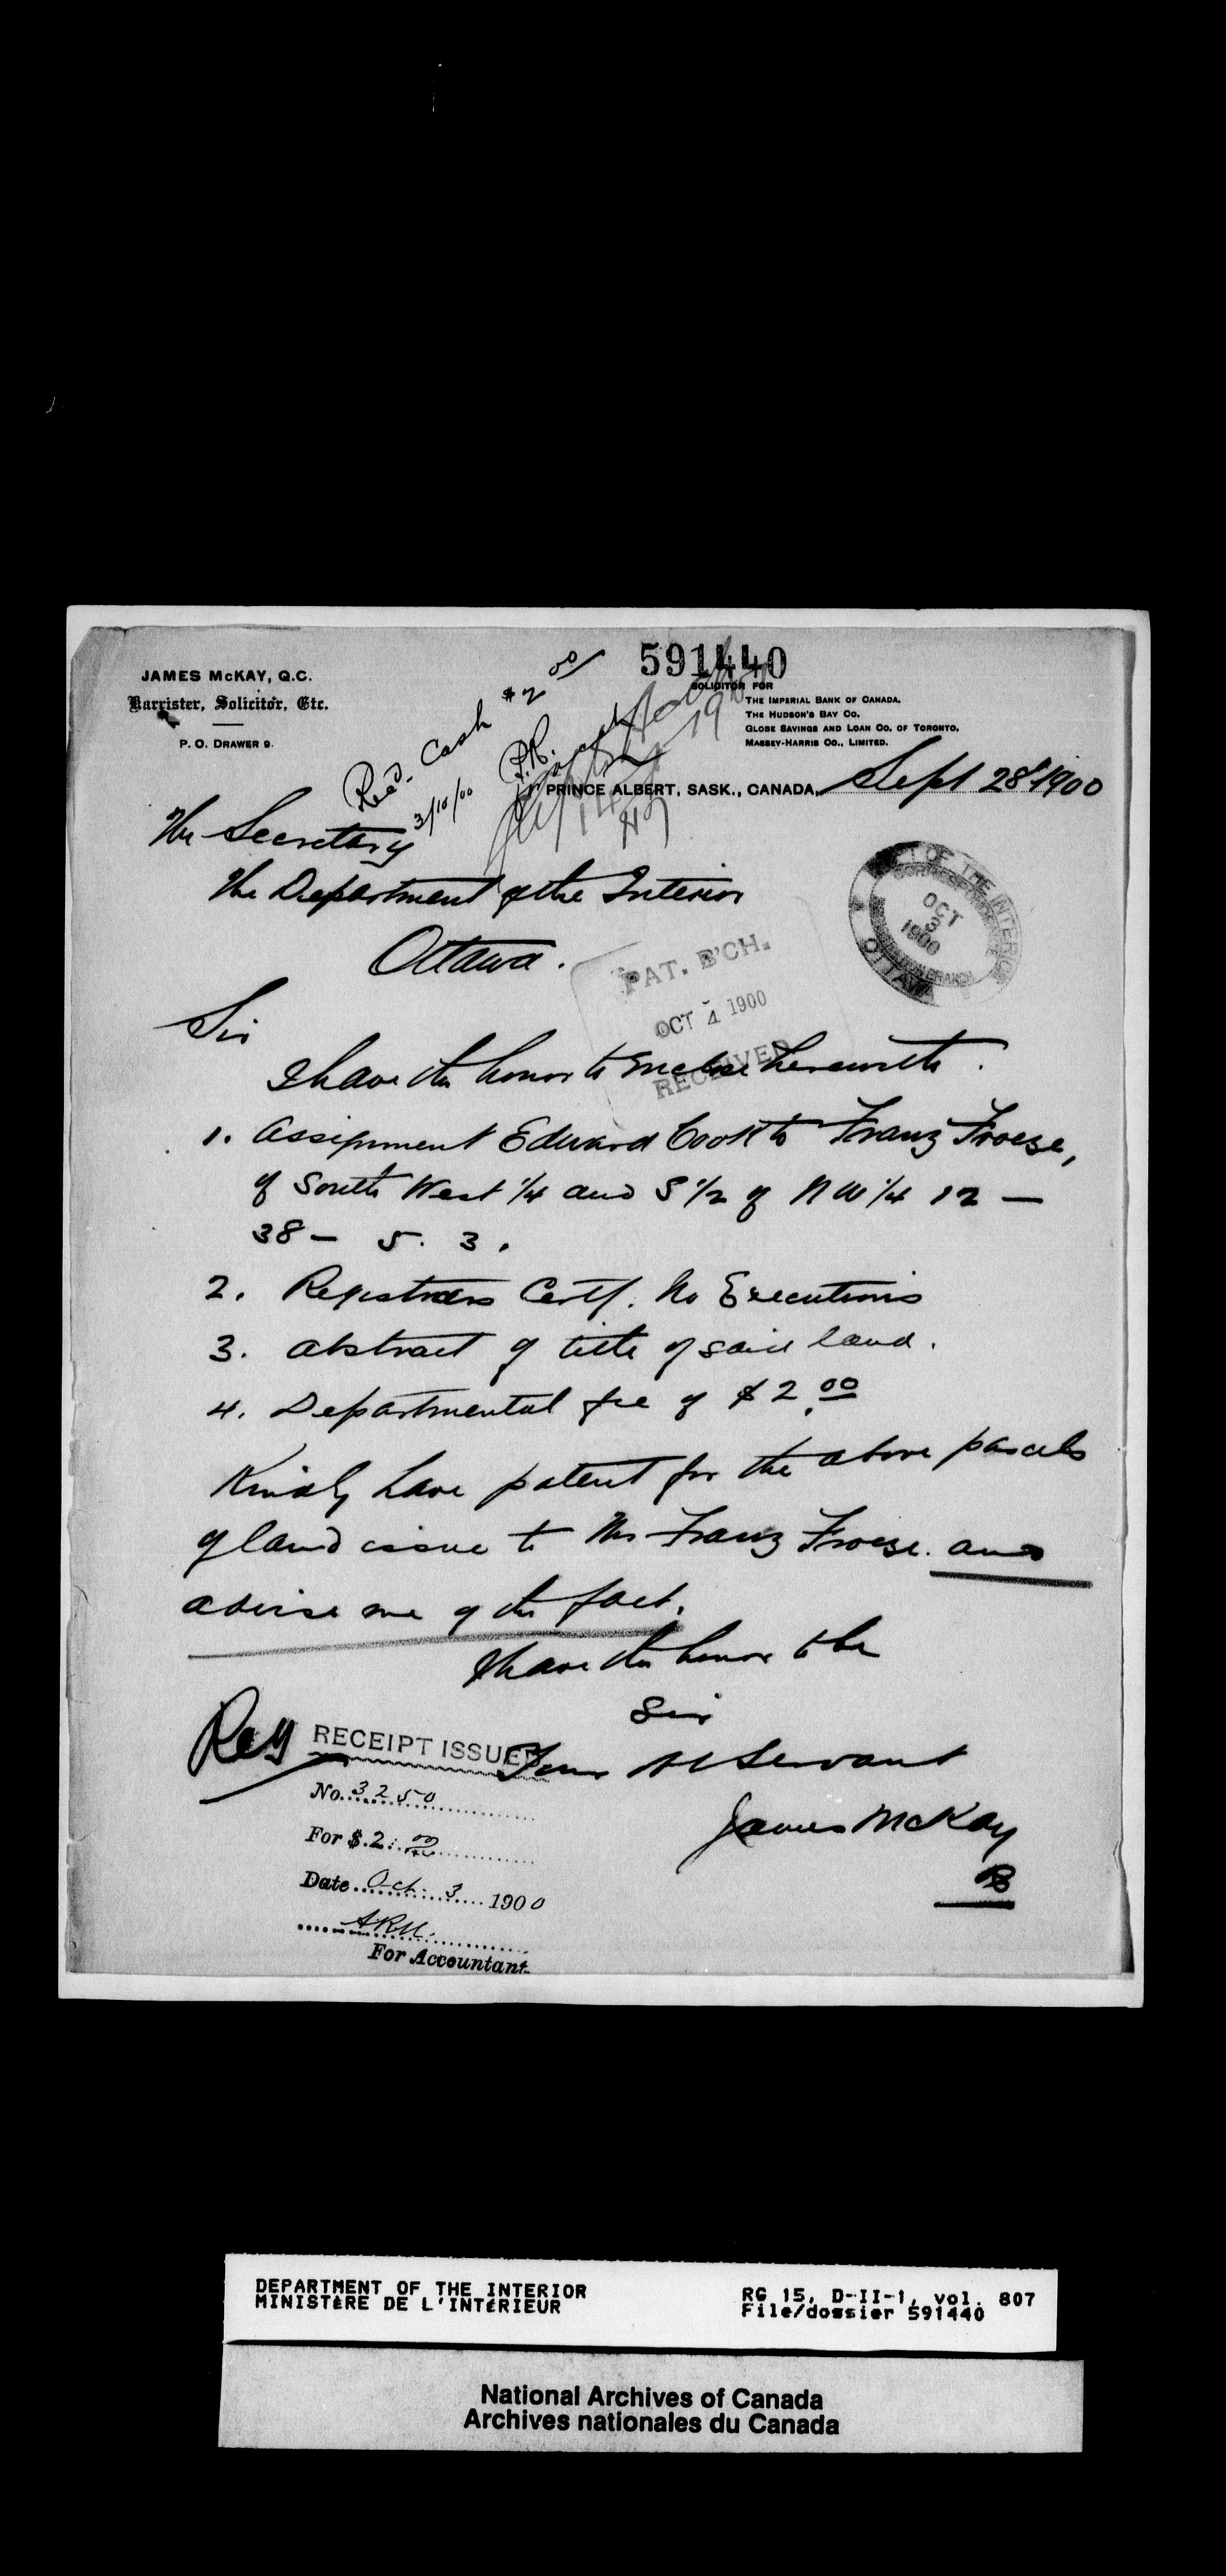 591440
JAMES McKAY, Q.C.
Barrister, Solicitor, Etc.
P. O. DRAWER 9.
SOLICITOR FOR
THE IMPERIAL BANK OF CANADA.
THE HUDSON'S BAY CO.
GLOBE SAVINGS AND LOAN CO. OF TORONTO.
MASSEY-HARRIS CO., LIMITED.
Recd. Cash $2 00/
3/10/00 P.R.
PRINCE ALBERT, SASK., CANADA, Sept 28th 1900
The Secretary
The Department of the Interior
Ottawa.
DEPT OF THE INTERIOR
OCT
3
1900
OTTAWA
PAT. B'CH.
OCT 4 1900
RECEIVED
Sir
I have the honor to enclose herewith.
1. Assignment Edward Cook to Franz Froese,
of South West 1/4 and S 1/2 of N W 1/4 12 —
38 — 5. 3.
2. Registrars Certf. No Executions
3. Abstract of title of said land.
4. Departmental fee of $2.00
Kindly have patent for the above parcels
of land issue to Mr Franz Froese. and
advise me of the fact.
I have the honor to be
Sir
Your Ob Servant
James McKay
B
Reg
RECEIPT ISSUED
No. 3250
For $ 2.00
Date Oct. 3 1900
For Accountant.
DEPARTMENT OF THE INTERIOR
MINISTÈRE DE L'INTÉRIEUR
RG 15, D-II-1, vol. 807
File/dossier 591440
National Archives of Canada
Archives nationales du Canada